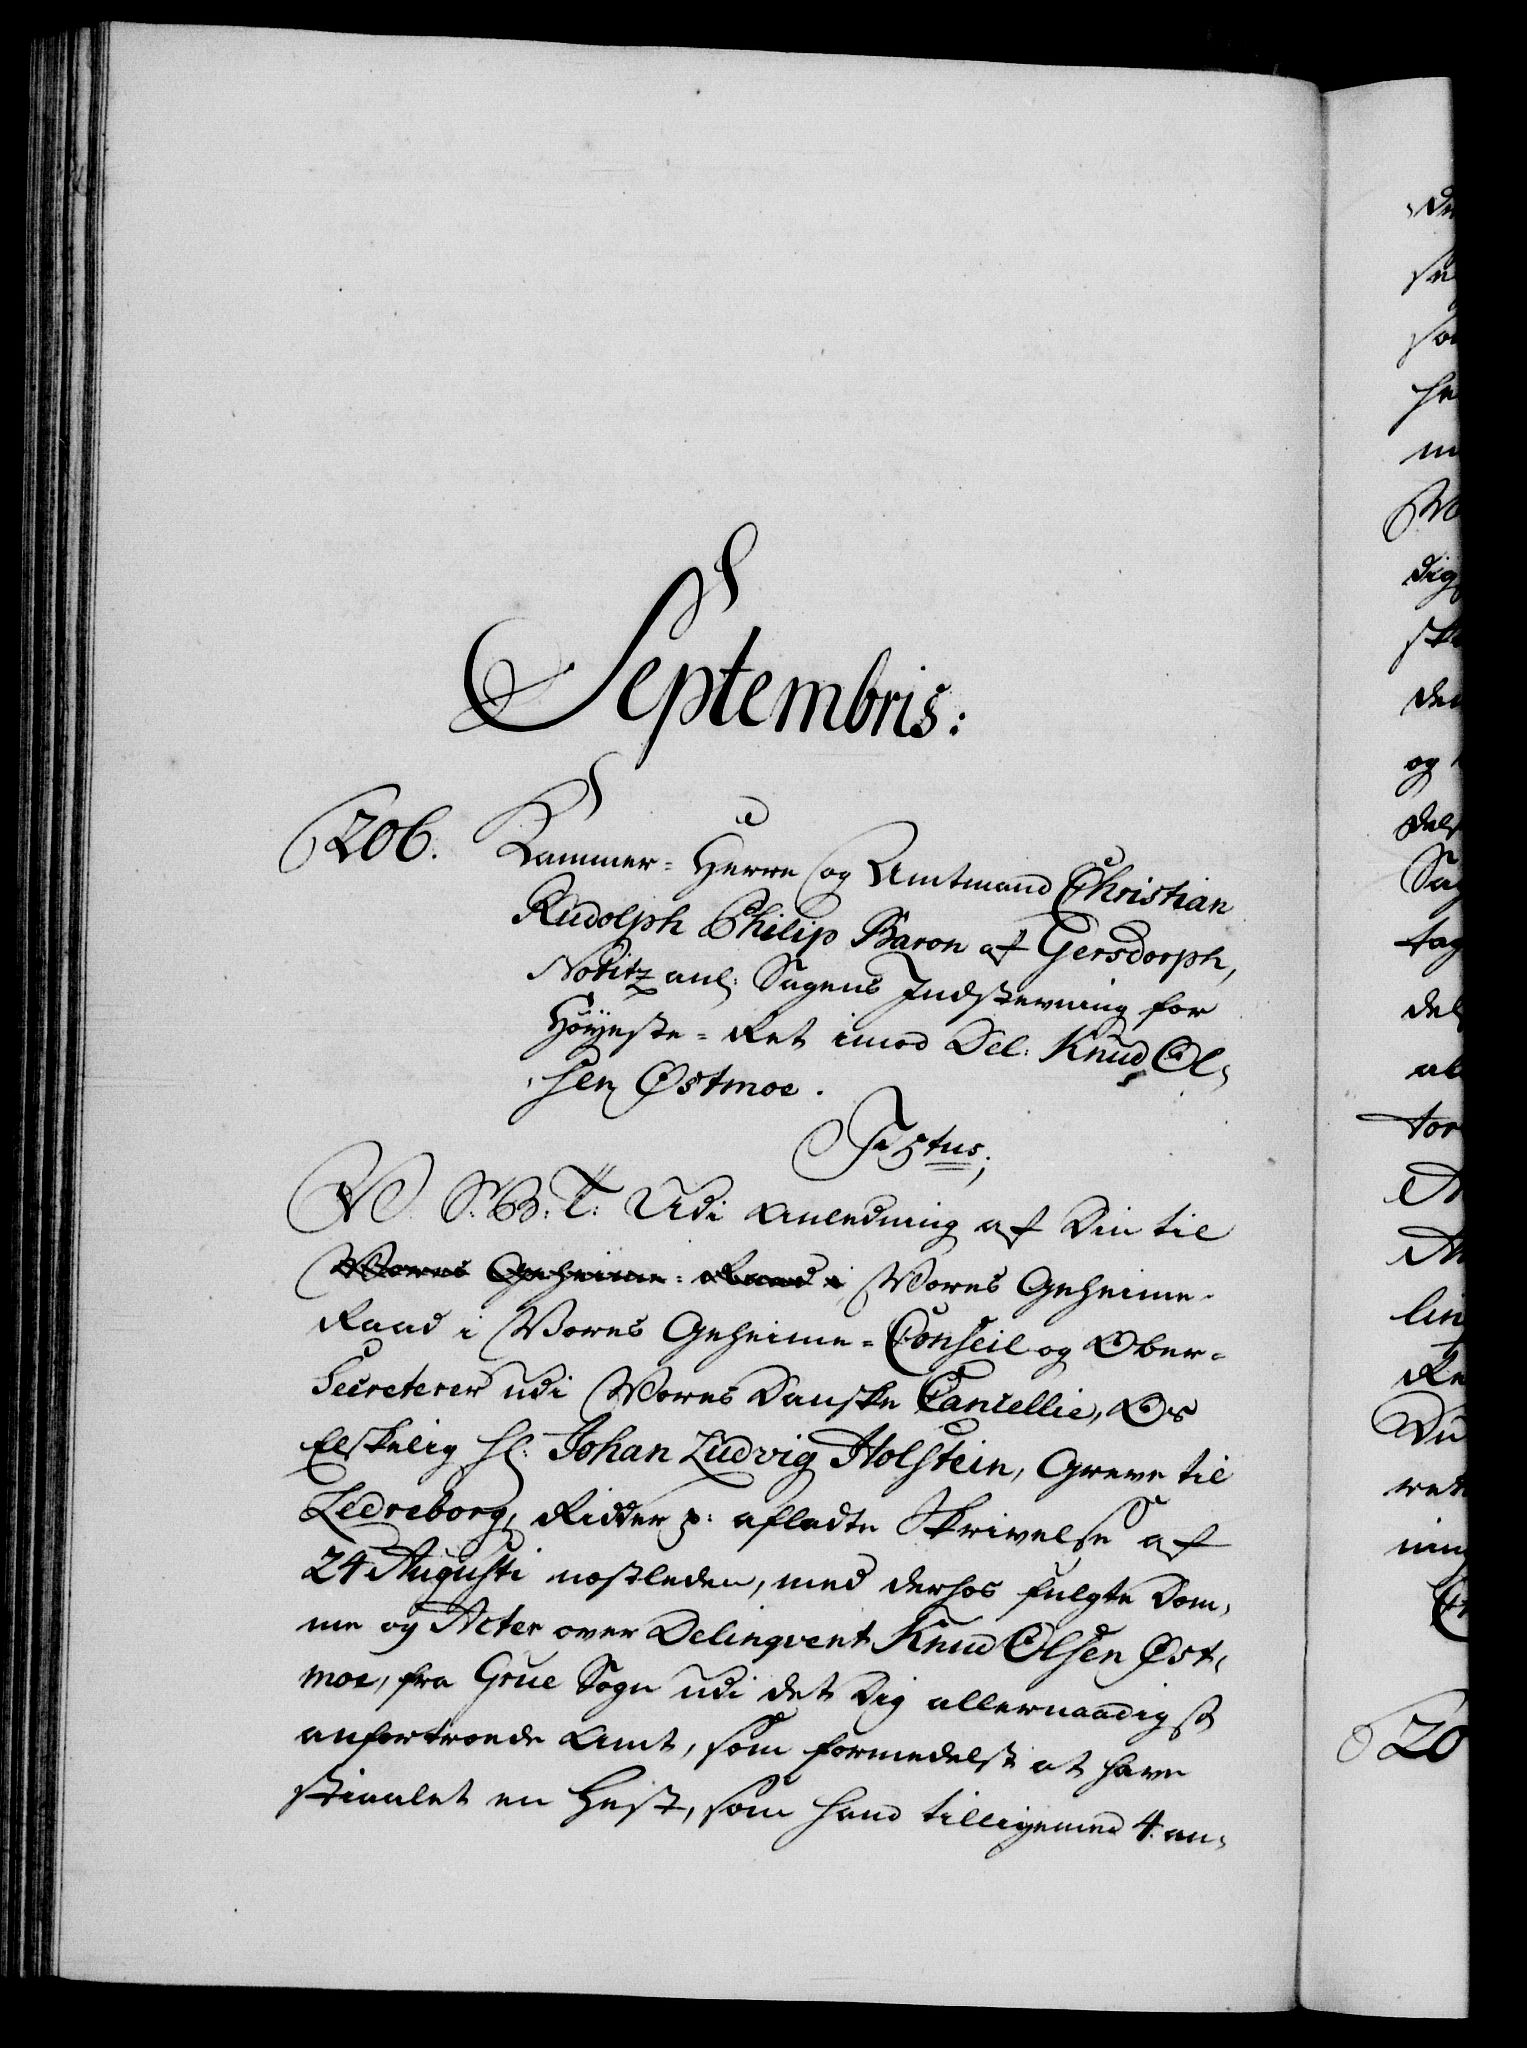 Septembris:
206. Kammer-Herre og Amtmand Christian
Rudolph Philip Baron af Gersdorph,
Notitz anl: Sagens Indstevning for
Höyeste-Ret imod Del: Knud Ol-
sen Østmoe.
Textus;
V. S. B. T: Udi Anledning af Din til
Vores Geheime-Raad i Vores Geheime-
Raad i Vores Geheime-Conseil og Ober-
Secreterer udi Vores Danske Cancellie, Os
Elskelig H: Johan Ludvig Holstein, Greve til
Ledreborg, Ridder p: afladte Skrivelse af
24 Augusti nestleden, med derhos fulgte Dom-
me og Acter over Delinqvent Knud Olsen Øst-
moe, fra Grue Sogn udi det Dig allernaadigst
anfortroede Amt, som formedelst at have
stiaalet en Hest, som hand tilligemed 4. an-
20